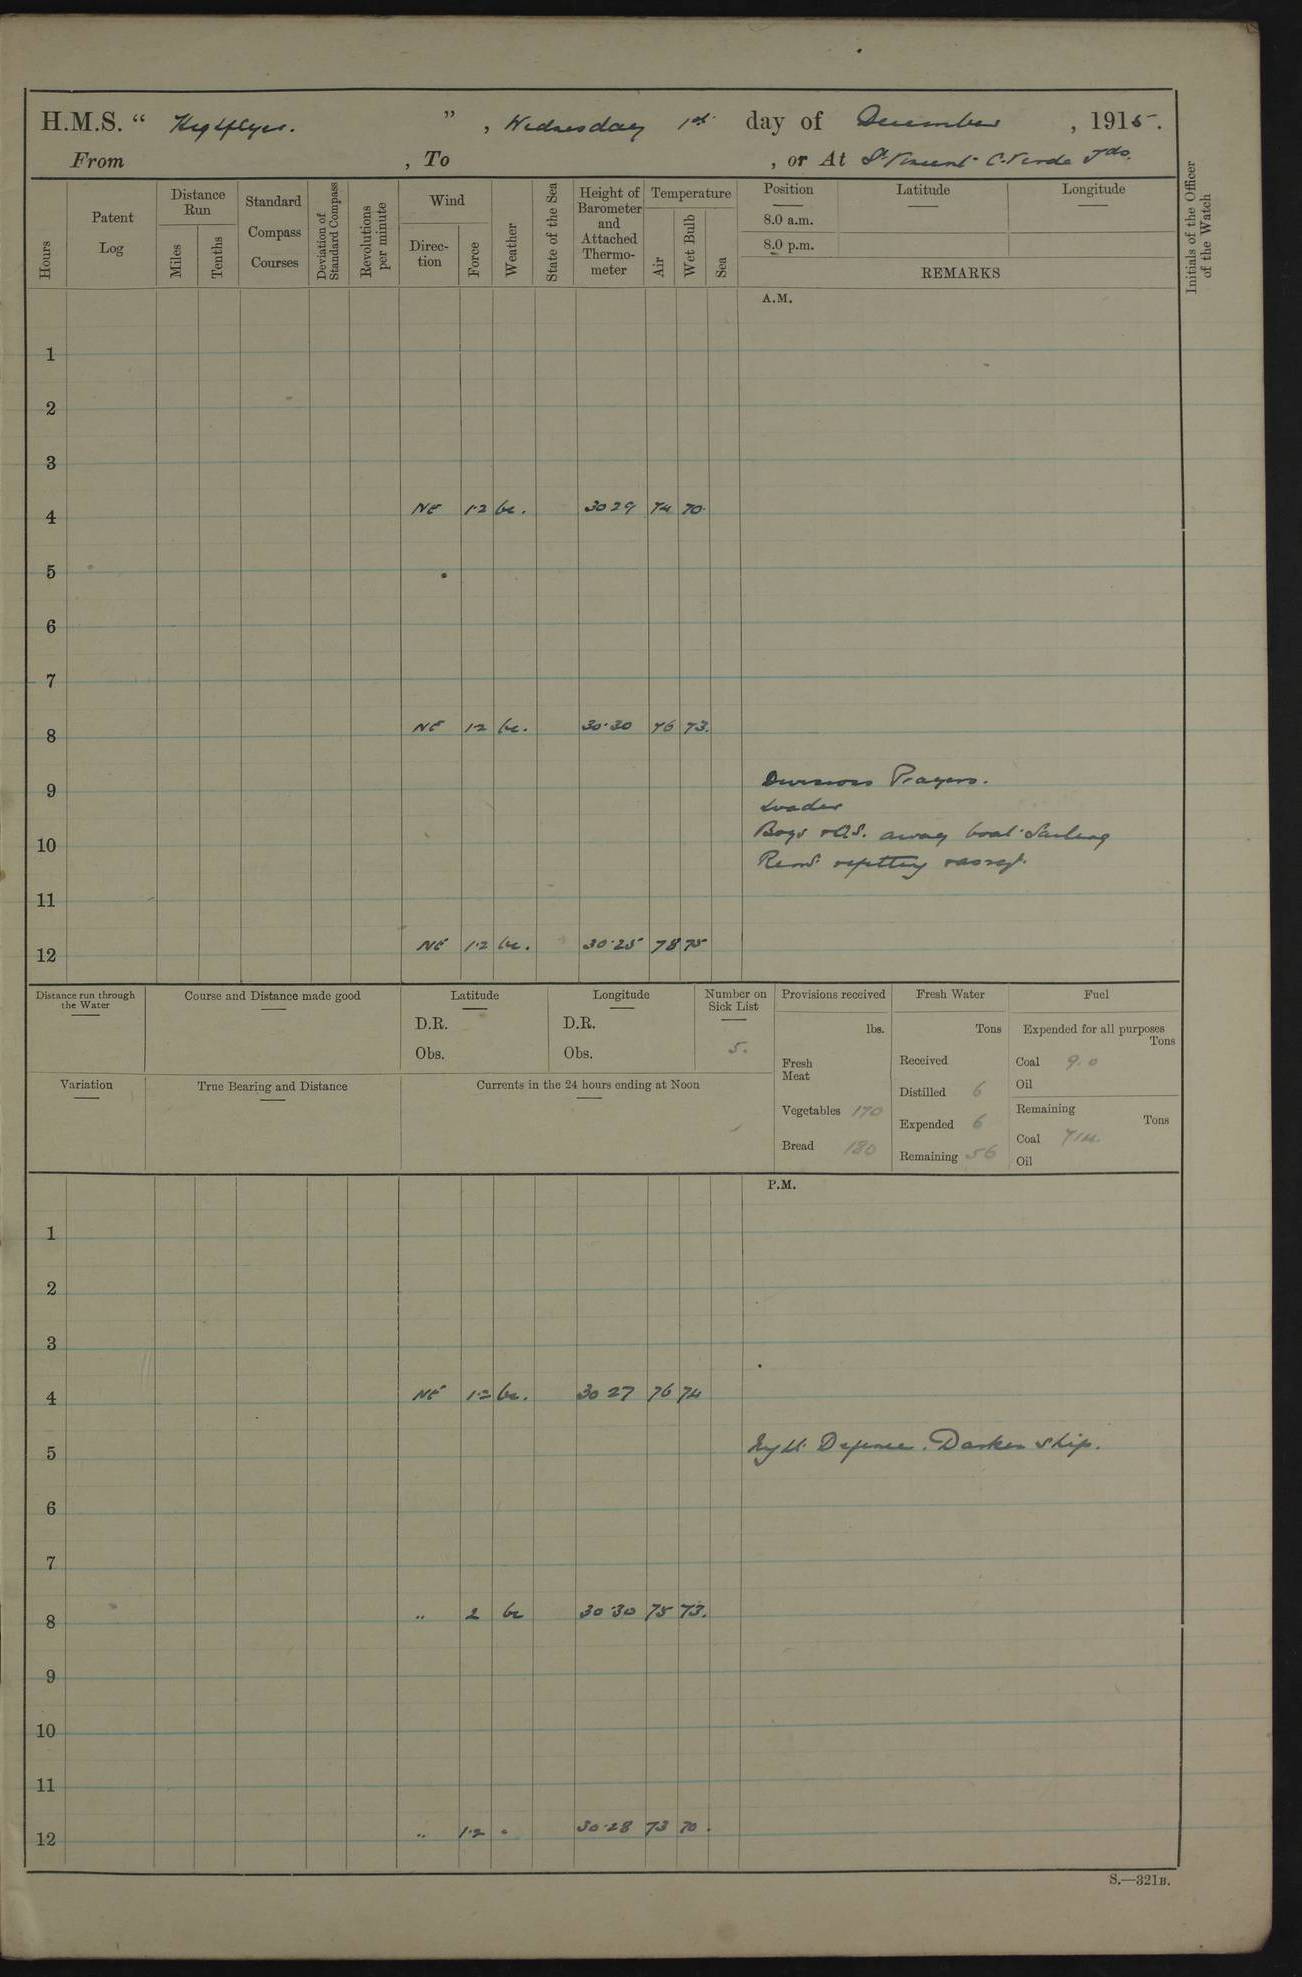 H.M.S. " Highflyer. " , Wednesday 1st day of December , 1915.
From , To , or At St Vincent C. Verde Ids.
Hours
Patent Log
Distance Run
Miles
Tenths
Standard Compass Courses
Deviation of Standard Compass
Revolutions per minute
Wind
Direction
Force
Weather
State of the Sea
Height of Barometer and Attached Thermometer
Temperature
Air
Wet Bulb
Sea
Position Latitude Longitude
8.0 a.m.
8.0 p.m.
REMARKS
Initials of the Officer of the Watch
A.M.
1
2
3
4 NE 1·2 bc. 30 29 74 70
5
6
7
8 NE 1·2 bc. 30·30 76 73.
Divisions Prayers.
9
Loader
Boys & OS. away boat Sailing
10
Remr refitting
11
12 NE 1·2 bc. 30·25 78 75
Distance run through the Water
Course and Distance made good
Latitude
D.R.
Obs.
Longitude
D.R.
Obs.
Number on Sick List
5.
Variation
True Bearing and Distance
Currents in the 24 hours ending at Noon
Provisions received
lbs.
Fresh Meat
Vegetables 170
Bread 180
Fresh Water
Tons
Received
Distilled 6
Expended 6
Remaining 56
Fuel
Expended for all purposes
Tons
Coal 9.0
Oil
Remaining
Tons
Coal 714
Oil
P.M.
1
2
3
4 NE 1·2 bc. 30 27 76 74
5 Night Defence. Darken ship.
6
7
8 " 2 bc 30·30 75 73.
9
10
11
12 " 1·2 " 30·28 73 70.
S.—321B.